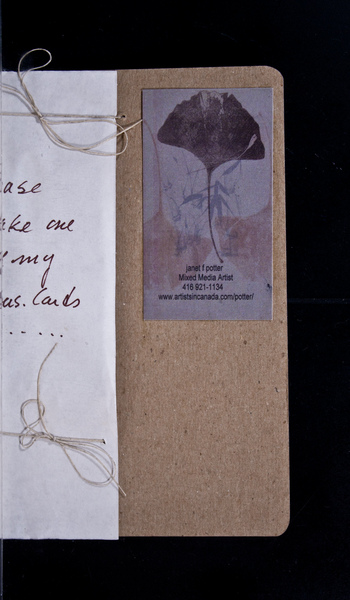 ase
ke one
my
us. Cards
.....
janet f potter
Mixed Media Artist
416 921-1134
www.artistsincanada.com/potter/